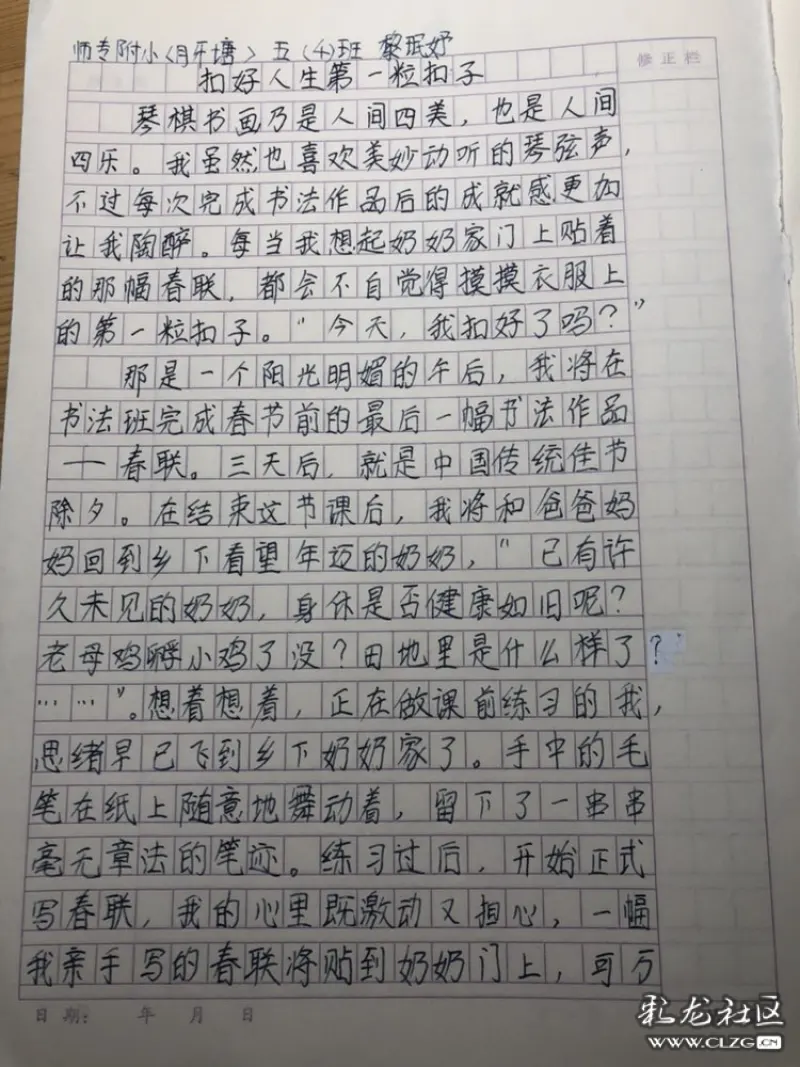 师专附小〈月牙塘〉五(4)班 黎珉妤
修正栏
扣好人生第一粒扣子
琴棋书画乃是人间四美，也是人间
四乐。我虽然也喜欢美妙动听的琴弦声，
不过每次完成书法作品后的成就感更加
让我陶醉。每当我想起奶奶家门上贴着
的那幅春联，都会不自觉得摸摸衣服上
的第一粒扣子。“今天，我扣好了吗？”
那是一个阳光明媚的午后，我将在
书法班完成春节前的最后一幅书法作品
——春联。三天后，就是中国传统佳节
除夕。在结束这节课后，我将和爸爸妈
妈回到乡下看望年迈的奶奶，“已有许
久未见的奶奶，身体是否健康如旧呢？
老母鸡孵小鸡了没？田地里是什么样了？
……”。想着想着，正在做课前练习的我，
思绪早已飞到乡下奶奶家了。手中的毛
笔在纸上随意地舞动着，留下了一串串
毫无章法的笔迹。练习过后，开始正式
写春联，我的心里既激动又担心，一幅
我亲手写的春联将贴到奶奶门上，可万
日期： 年 月 日
彩龙社区
WWW.CLZG.CN